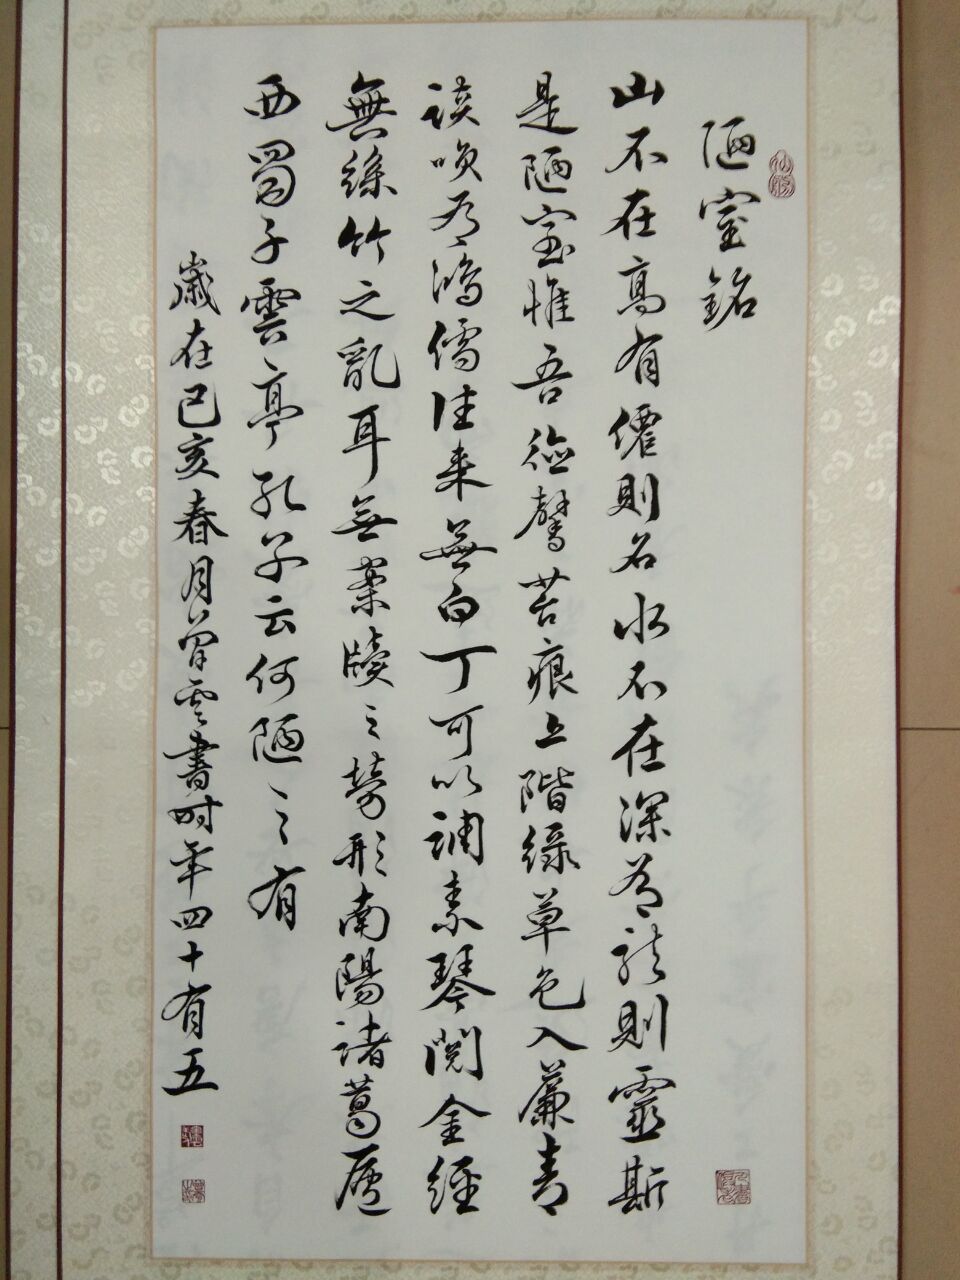 陋室銘
山不在高有僊則名水不在深有龍則靈斯
是陋室惟吾德馨苔痕上階綠草色入簾青
談笑有鴻儒往來無白丁可以調素琴閱金經
無絲竹之亂耳無案牘之勞形南陽諸葛廬
西蜀子雲亭孔子云何陋之有
歲在己亥春月 雲書時年四十有五